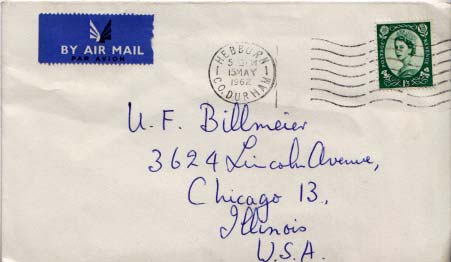 BY AIR MAIL
PAR AVION
HEBBURN
15 MAY
1962
CO. DURHAM
POSTAGE
REVENUE
U. F. Billmeier
3624 Lincoln Avenue,
Chicago 13,
Illinois
U.S.A.